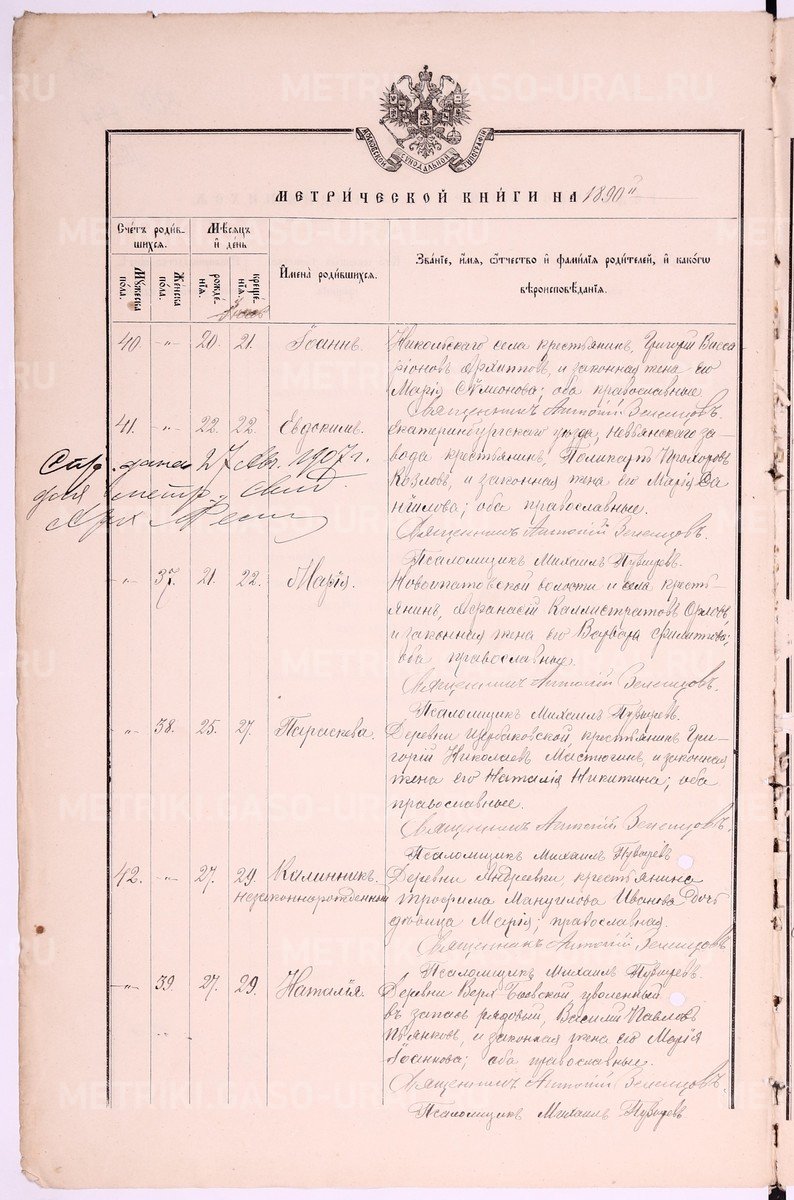 МОСКОВСКОЙ СѴНОДАЛЬНОЙ ТИПОГРАФІИ
МЕТРИЧЕСКОЙ КНИГИ НА 1890 й
Счетъ родив-
шихся.
Мужеска пола.
Женска пола.
Мѣсяцъ и день
рожде-
нія.
креще-
нія.
Имена родившихся.
Званіе, имя, отчество и фамилія родителей, и какогω
вѣроисповѣданія.
40 " 20. 21. Іоаннъ. Никольскаго села крестьянинъ, Григорій Висса-
ріоновъ Архиповъ, и законная жена его
Марія Сѵмеонова; оба православные
Священникъ Антоній Зеленцовъ.
41. " 22. 22. Евдокимъ. Екатеринбургскаго уѣзда, Невьянскаго за-
вода крестьянинъ, Поликарпъ Прохоровъ
Козловъ, и законная жена его Марія Да-
нїилова; оба православные.
дана 27 Авг. 1907 г.
для метр.
Священникъ Антоній Зеленцовъ.
Псаломщикъ Михаилъ
" 37. 21. 22. Марія. Новоипатовской волости и села кресть-
янинъ, Аѳанасій Каллистратовъ Орловъ
и законная жена его Варвара Филиппова;
оба православные.
Священникъ Антоній Зеленцовъ.
Псаломщикъ Михаилъ
" 38. 25. 27. Параскева. Деревни крестьянинъ Гри-
горій Николаевъ Мастюгинъ, и законная
жена его Наталія Никитина; оба
православные.
Священникъ Антоній Зеленцовъ.
Псаломщикъ Михаилъ
42. " 27. 29. Калинникъ. Деревни Андреевки, крестьянина
незаконнорожденный Трофима Мануилова Иванова дочь
дѣвица Марія; православная.
Священникъ Антоній Зеленцовъ
Псаломщикъ Михаилъ
" 39. 27. 29. Наталія. Деревни Верх уволенный
въ запасъ рядовый, Василій Павловъ
Пьянковъ, и законная жена его Марія
Іоаннова; оба православные.
Священникъ Антоній Зеленцовъ
Псаломщикъ Михаилъ
METRIKI.GASO-URAL.RU